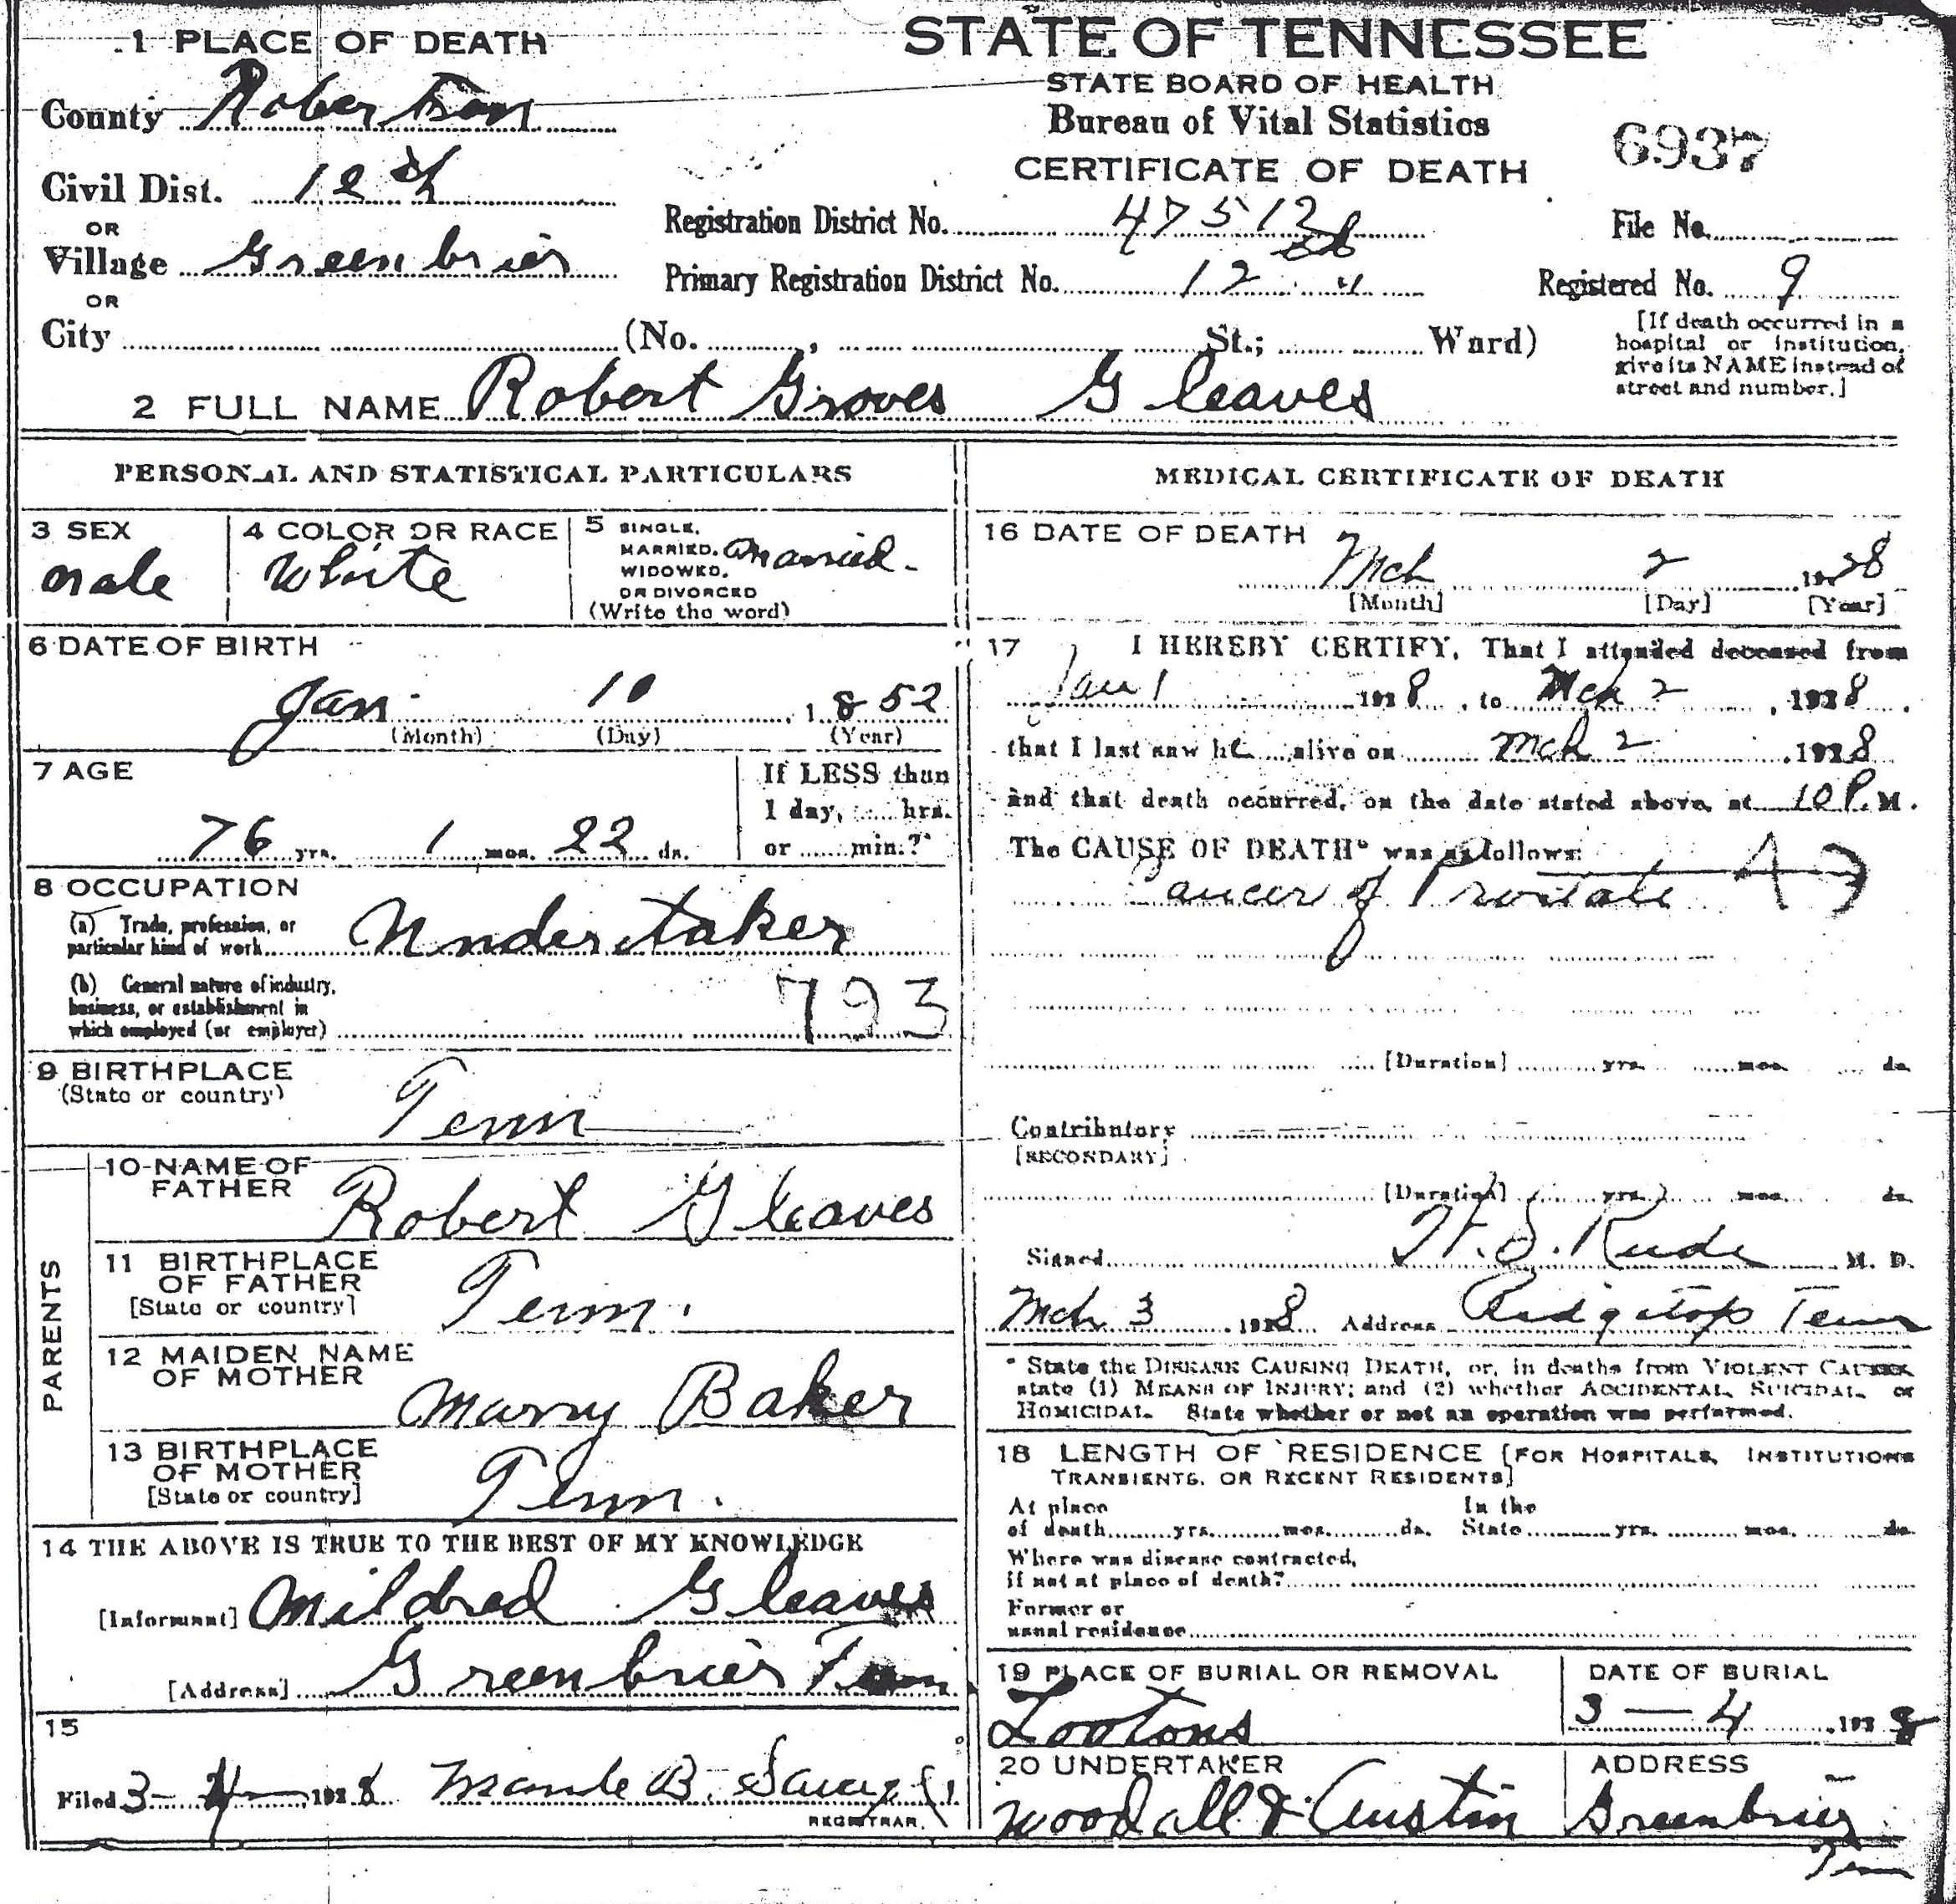 1 PLACE OF DEATH
STATE OF TENNESSEE
STATE BOARD OF HEALTH
Bureau of Vital Statistics
CERTIFICATE OF DEATH
6937
County Robertson
Civil Dist. 12th
OR
Village Greenbrier
OR
City (No. , St.; Ward)
Registration District No. 47512
Primary Registration District No. 12 "
File No.
Registered No. 9
[If death occurred in a
hospital or institution,
give its NAME instead of
street and number.]
2 FULL NAME Robert Groves Gleaves
PERSONAL AND STATISTICAL PARTICULARS
3 SEX
male
4 COLOR OR RACE
White
5 SINGLE,
MARRIED, married.
WIDOWED,
OR DIVORCED
(Write the word)
6 DATE OF BIRTH
Jan 10, 1852
(Month) (Day) (Year)
7 AGE
76 yrs. 1 mos. 22 ds.
If LESS than
1 day, hrs.
or min.?
8 OCCUPATION
(a) Trade, profession, or
particular kind of work Undertaker
(b) General nature of industry,
business, or establishment in
which employed (or employer)
793
9 BIRTHPLACE
(State or country)
Tenn
PARENTS
10 NAME OF
FATHER
Robert Gleaves
11 BIRTHPLACE
OF FATHER
[State or country]
Tenn.
12 MAIDEN NAME
OF MOTHER
Marry Baker
13 BIRTHPLACE
OF MOTHER
[State or country]
Tenn.
14 THE ABOVE IS TRUE TO THE BEST OF MY KNOWLEDGE
[Informant] Mildred Gleaves
[Address] Greenbrier Tenn
15
Filed 3-4-, 1928 Maude B.
REGISTRAR.
MEDICAL CERTIFICATE OF DEATH
16 DATE OF DEATH
Mch 2 1928
[Month] [Day] [Year]
17 I HEREBY CERTIFY, That I attended deceased from
Jan 1 1928, to Mch 2, 1928.
that I last saw h alive on Mch 2, 1928
and that death occurred, on the date stated above, at 10 P. M.
The CAUSE OF DEATH* was as follows:
Cancer of Prostate
[Duration] yrs. mos. ds.
Contributory
[SECONDARY]
[Duration] yrs. mos. ds.
Signed Rude M. D.
Mch 3, 1928 Address Ridgetop Tenn
* State the DISEASE CAUSING DEATH, or, in deaths from VIOLENT CAUSES
state (1) MEANS OF INJURY; and (2) whether ACCIDENTAL, SUICIDAL, or
HOMICIDAL. State whether or not an operation was performed.
18 LENGTH OF RESIDENCE [FOR HOSPITALS, INSTITUTIONS
TRANSIENTS, OR RECENT RESIDENTS]
At place In the
of death yrs. mos. ds. State yrs. mos. ds.
Where was disease contracted,
if not at place of death?
Former or
usual residence
19 PLACE OF BURIAL OR REMOVAL
DATE OF BURIAL
3 — 4, 1928
20 UNDERTAKER
Woodall & Austin
ADDRESS
Greenbrier
Tenn